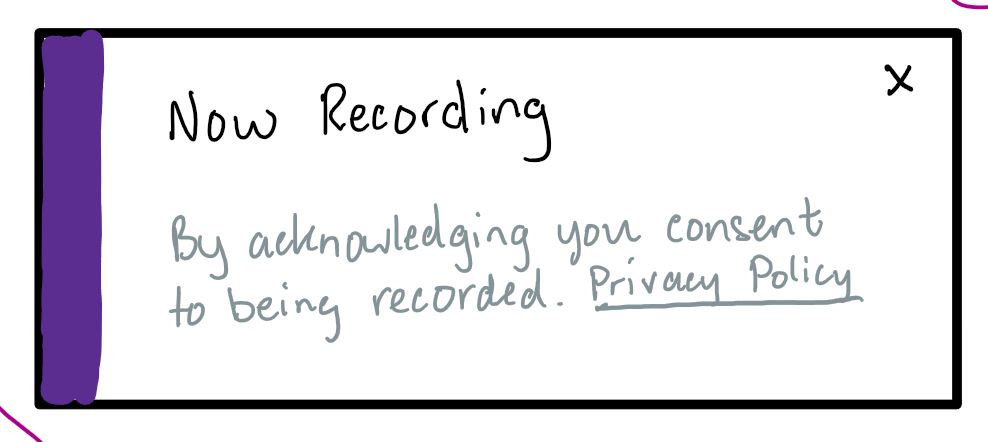 Now Recording
X
By acknowledging you consent
to being recorded. Privacy Policy